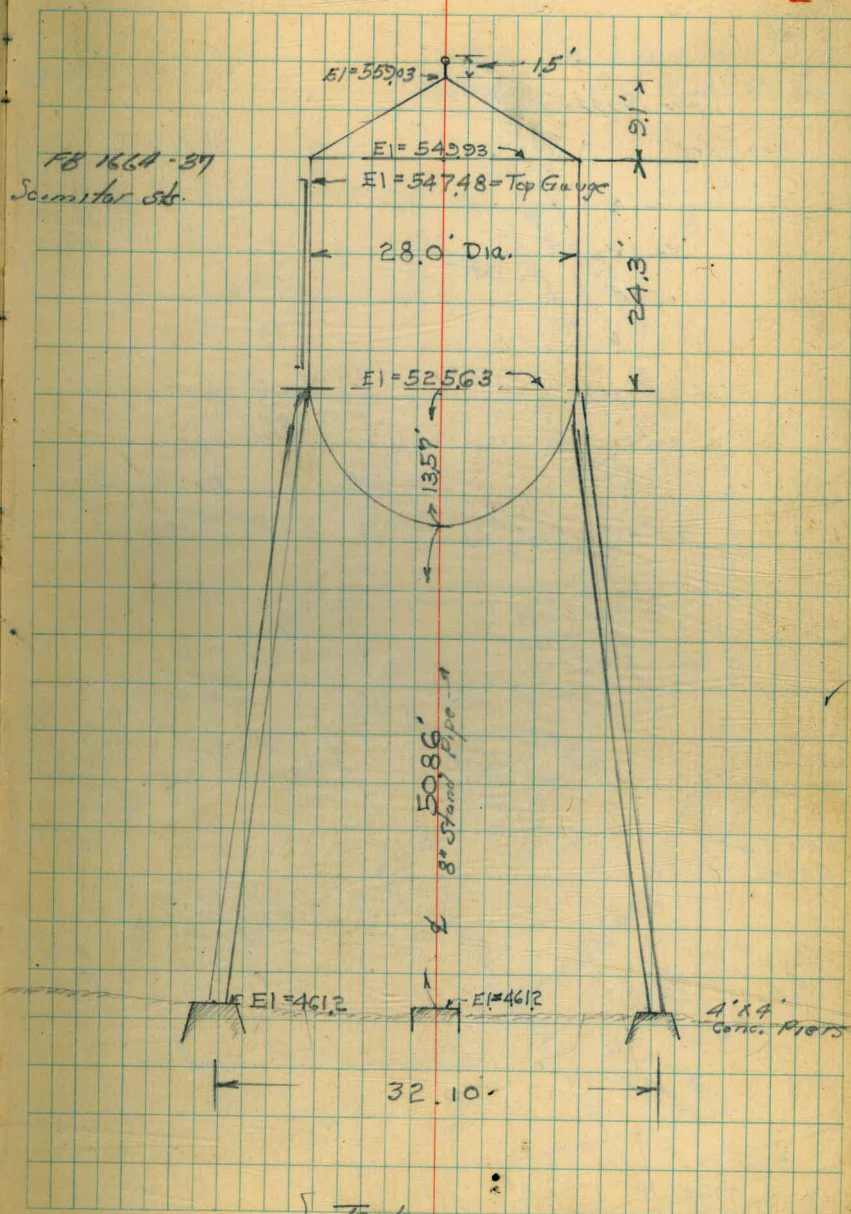 1.5'
El=559.03
9.1'
FB 1664-37
Scimitar sts.
El=549.93
El=547.48=Top Gauge
28.0' Dia.
24.3'
El=525.63
13.57'
50.86'
8" Stand Pipe
El=461.2
El=461.2
4'X4'
Conc. Piers
32.10